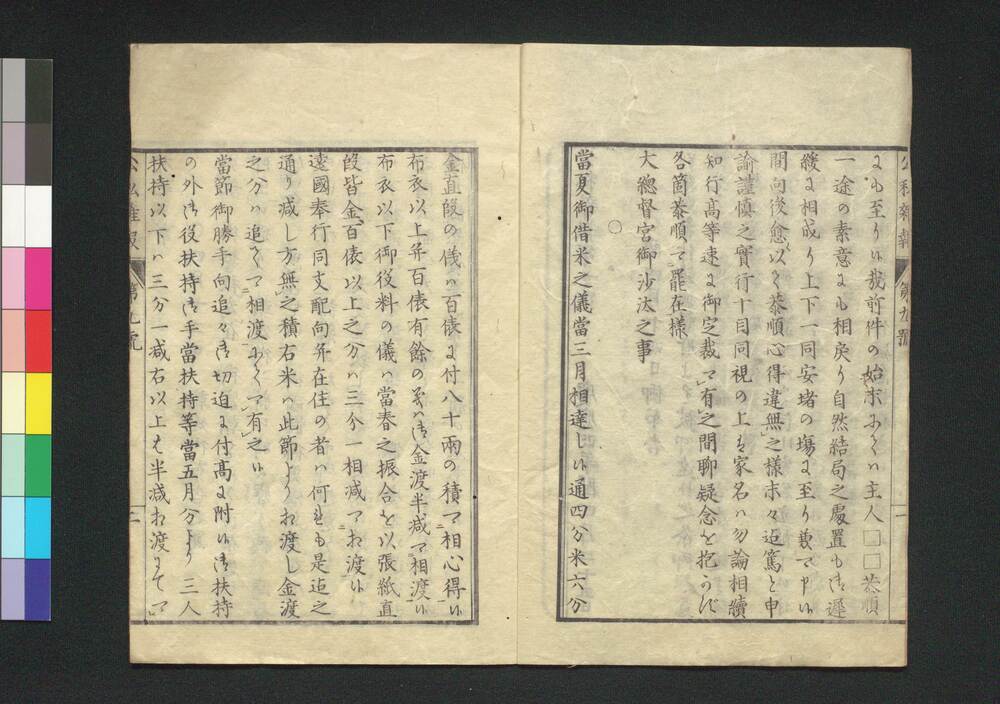 公私雜報 第九號 一
にも至り候哉前件の始末ふてハ主人□□恭順
一途の素意にも相戾り自然結局之處置も御遲
緩に相成り上下一同安堵の場に至り兼可申候
間向後愈以て恭順心得違無之樣末々迄篤と申
諭謹愼之實行十目同視の上は家名ハ勿論相續
知行高等速に御定裁可有之間聊疑念を抱かず
各箇恭順可罷在樣
大總督宮御沙汰之事
○
當夏御借米之儀當三月相達し候通四分米六分
金直段の儀ハ百俵に付八十兩の積可相心得候
布衣以上并百俵有餘の分ハ御金渡半減可相渡候
布衣以下御役料の儀ハ當春之振合を以張紙直
段皆金百俵以上之分ハ三分一相減可相渡候
遠國奉行同支配向并在住の者ハ何れも是迄之
通り減し方無之積右米ハ此節より相渡し金渡
之分ハ追て可相渡ふて可有之候
當節御勝手向追々御切迫に付高に附候御扶持
の外御役扶持御手當扶持等當五月分より三人
扶持以下ハ三分一減右以上は半減相渡にて可
公私雜報 第九號 二